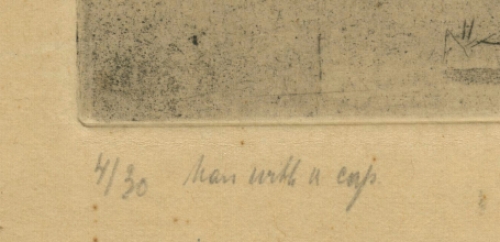 4/30 Man with a cap